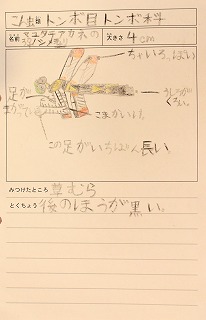 こん虫類 トンボ目 トンボ科
名前 マユタテアカネの
大きさ 4cm
ちゃいろっぽい
足が
まがっている
うしろが
くろい。
こまかいけ。
この足がいちばん長い
みつけたところ 草むら
とくちょう 後のほうが黒い。